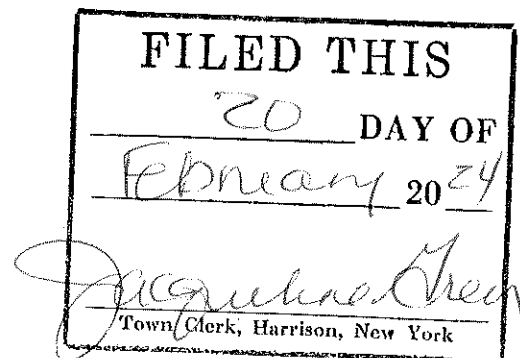 FILED THIS
20 DAY OF
February 20 24
Jacqueline Greer
Town Clerk, Harrison, New York